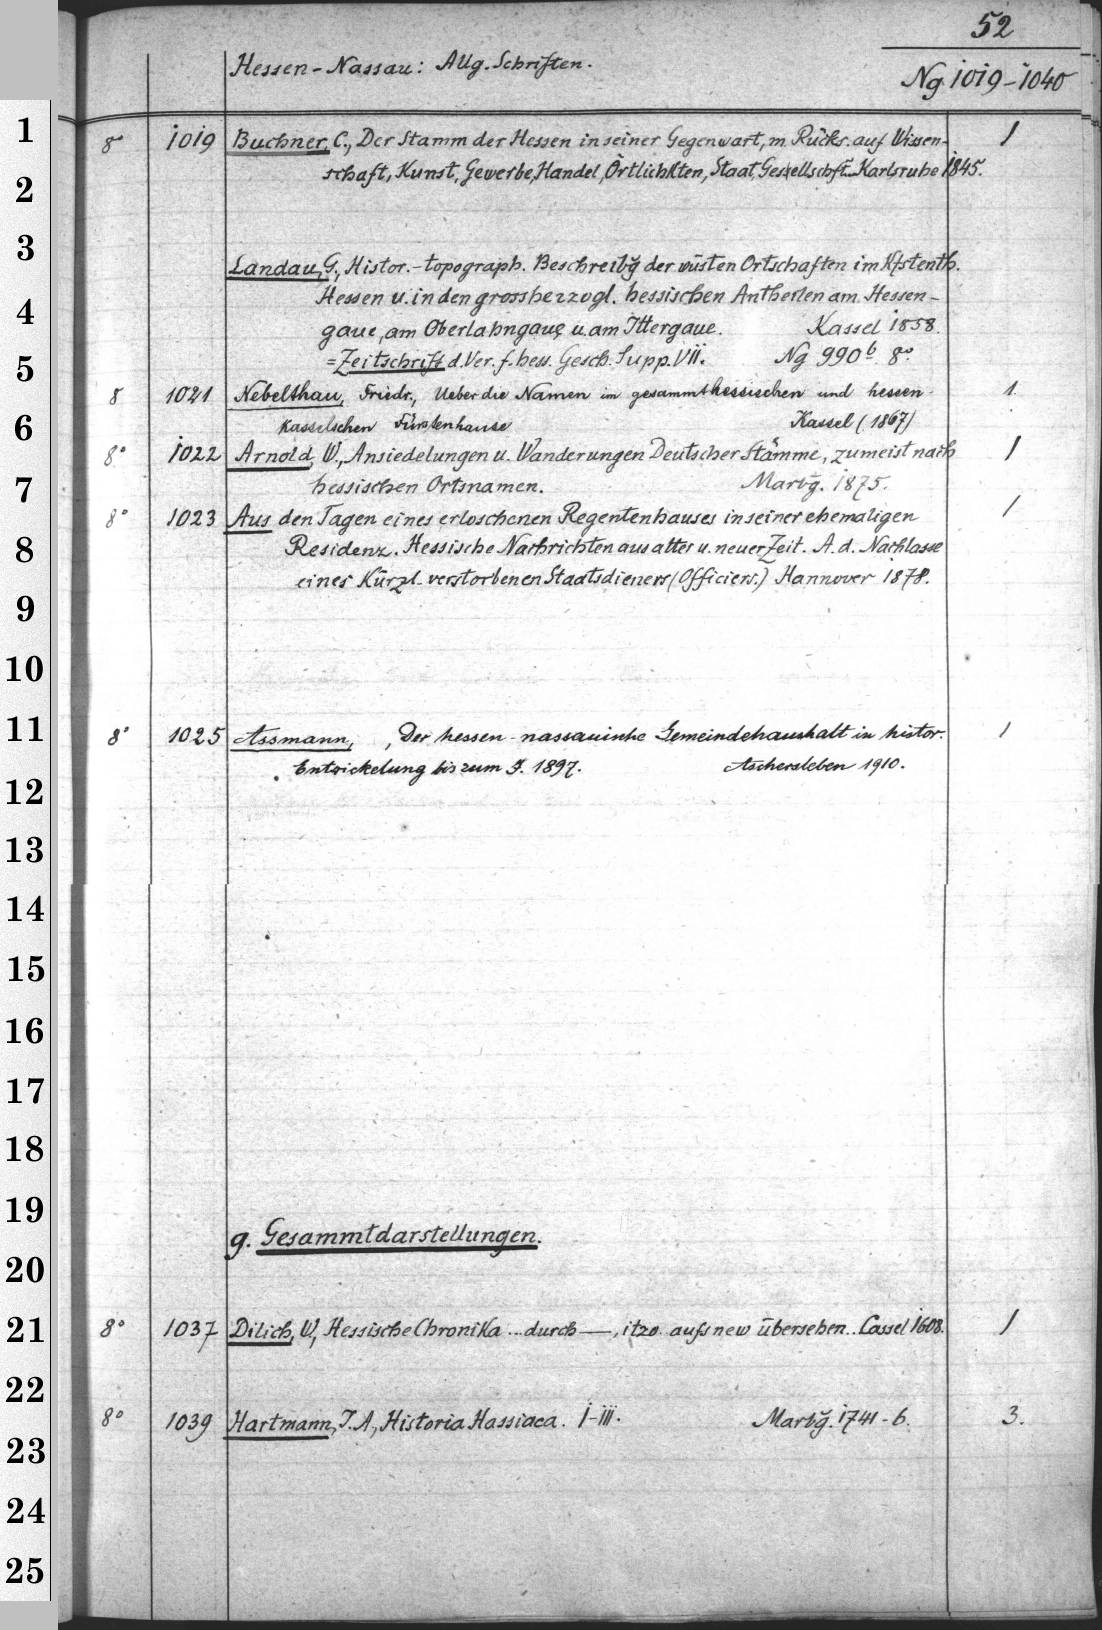 52
Hessen-Nassau: Allg. Schriften.
Ng 1019-1040
1
8° 1019 Buchner, C., Der Stamm der Hessen in seiner Gegenwart, m. Rücks. auf Wissen- 1
2
schaft, Kunst, Gewerbe, Handel, Örtlichkten, Staat, Gesellschft... Karlsruhe 1845.
3
Landau, G., Histor.-topograph. Beschreibg̃ der wüsten Ortschaften im Kfstenth.
Hessen u. in den grossherzogl. hessischen Antheilen am Hessen-
4
gaue, am Oberlahngaue u. am Ittergaue. Kassel 1858.
= Zeitschrift d. Ver. f. hess. Gesch. Supp. VII. Ng 990b 8°.
5
8 1021 Nebelthau, Friedr., Ueber die Namen im gesammthessischen und hessen- 1.
6
kasselschen Fürstenhause Kassel (1867)
8° 1022 Arnold, W., Ansiedelungen u. Wanderungen Deutscher Stämme, zumeist nach 1
7
hessischen Ortsnamen. Marbg̃. 1875.
8° 1023 Aus den Tagen eines erloschenen Regentenhauses in seiner ehemaligen 1
8
Residenz. Hessische Nachrichten aus alter u. neuer Zeit. A. d. Nachlasse
eines Kürzl. verstorbenen Staatsdieners (Officiers.) Hannover 1878.
9
10
11
8° 1025 Assmann, , Der hessen-nassauische Gemeindehaushalt in histor. 1
Entwickelung bis zum J. 1897. Aschersleben 1910.
12
13
14
15
16
17
18
19
g. Gesammtdarstellungen.
20
21
8° 1037 Dilich, W., Hessische Chronika ... durch —, itzo aufs new übersehen.. Cassel 1608. 1
22
8° 1039 Hartmann, J. A., Historia Hassiaca. I-III. Marbg̃. 1741-6. 3.
23
24
25